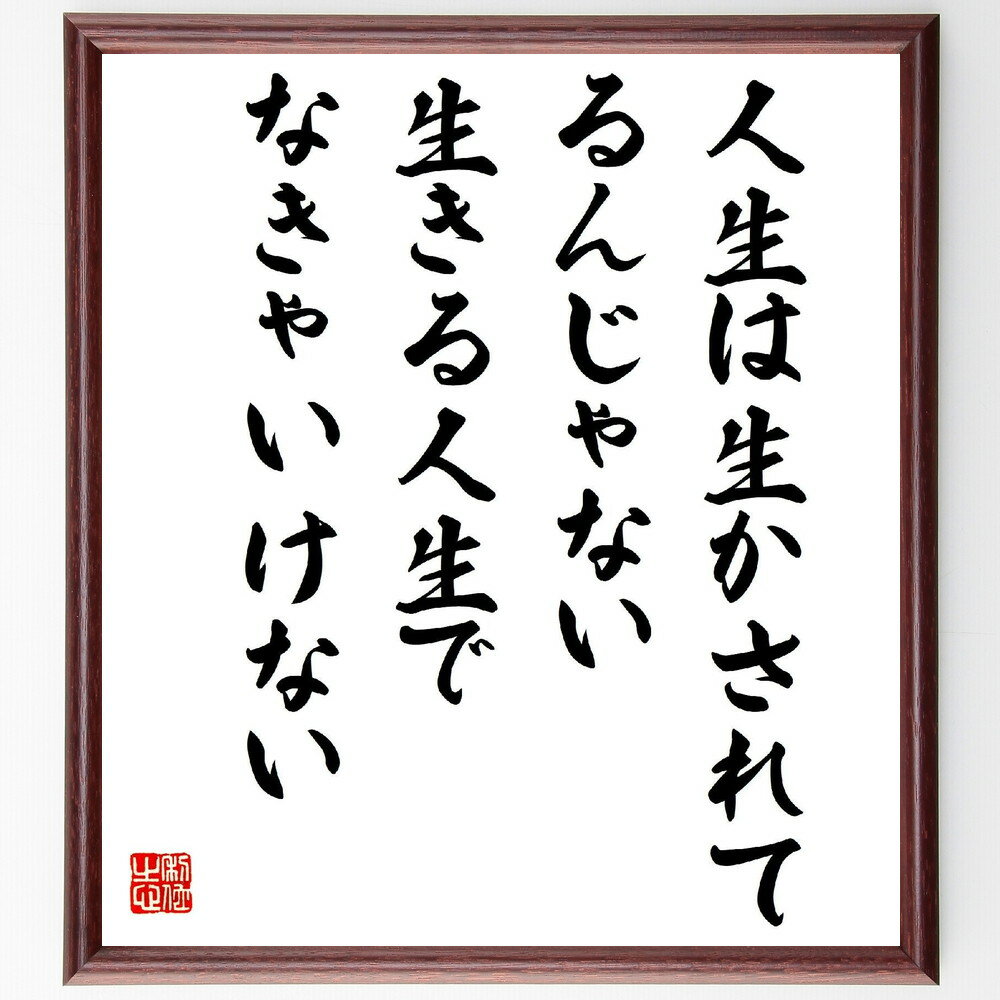 人生は生かされて
るんじゃない
生きる人生で
なきゃいけない